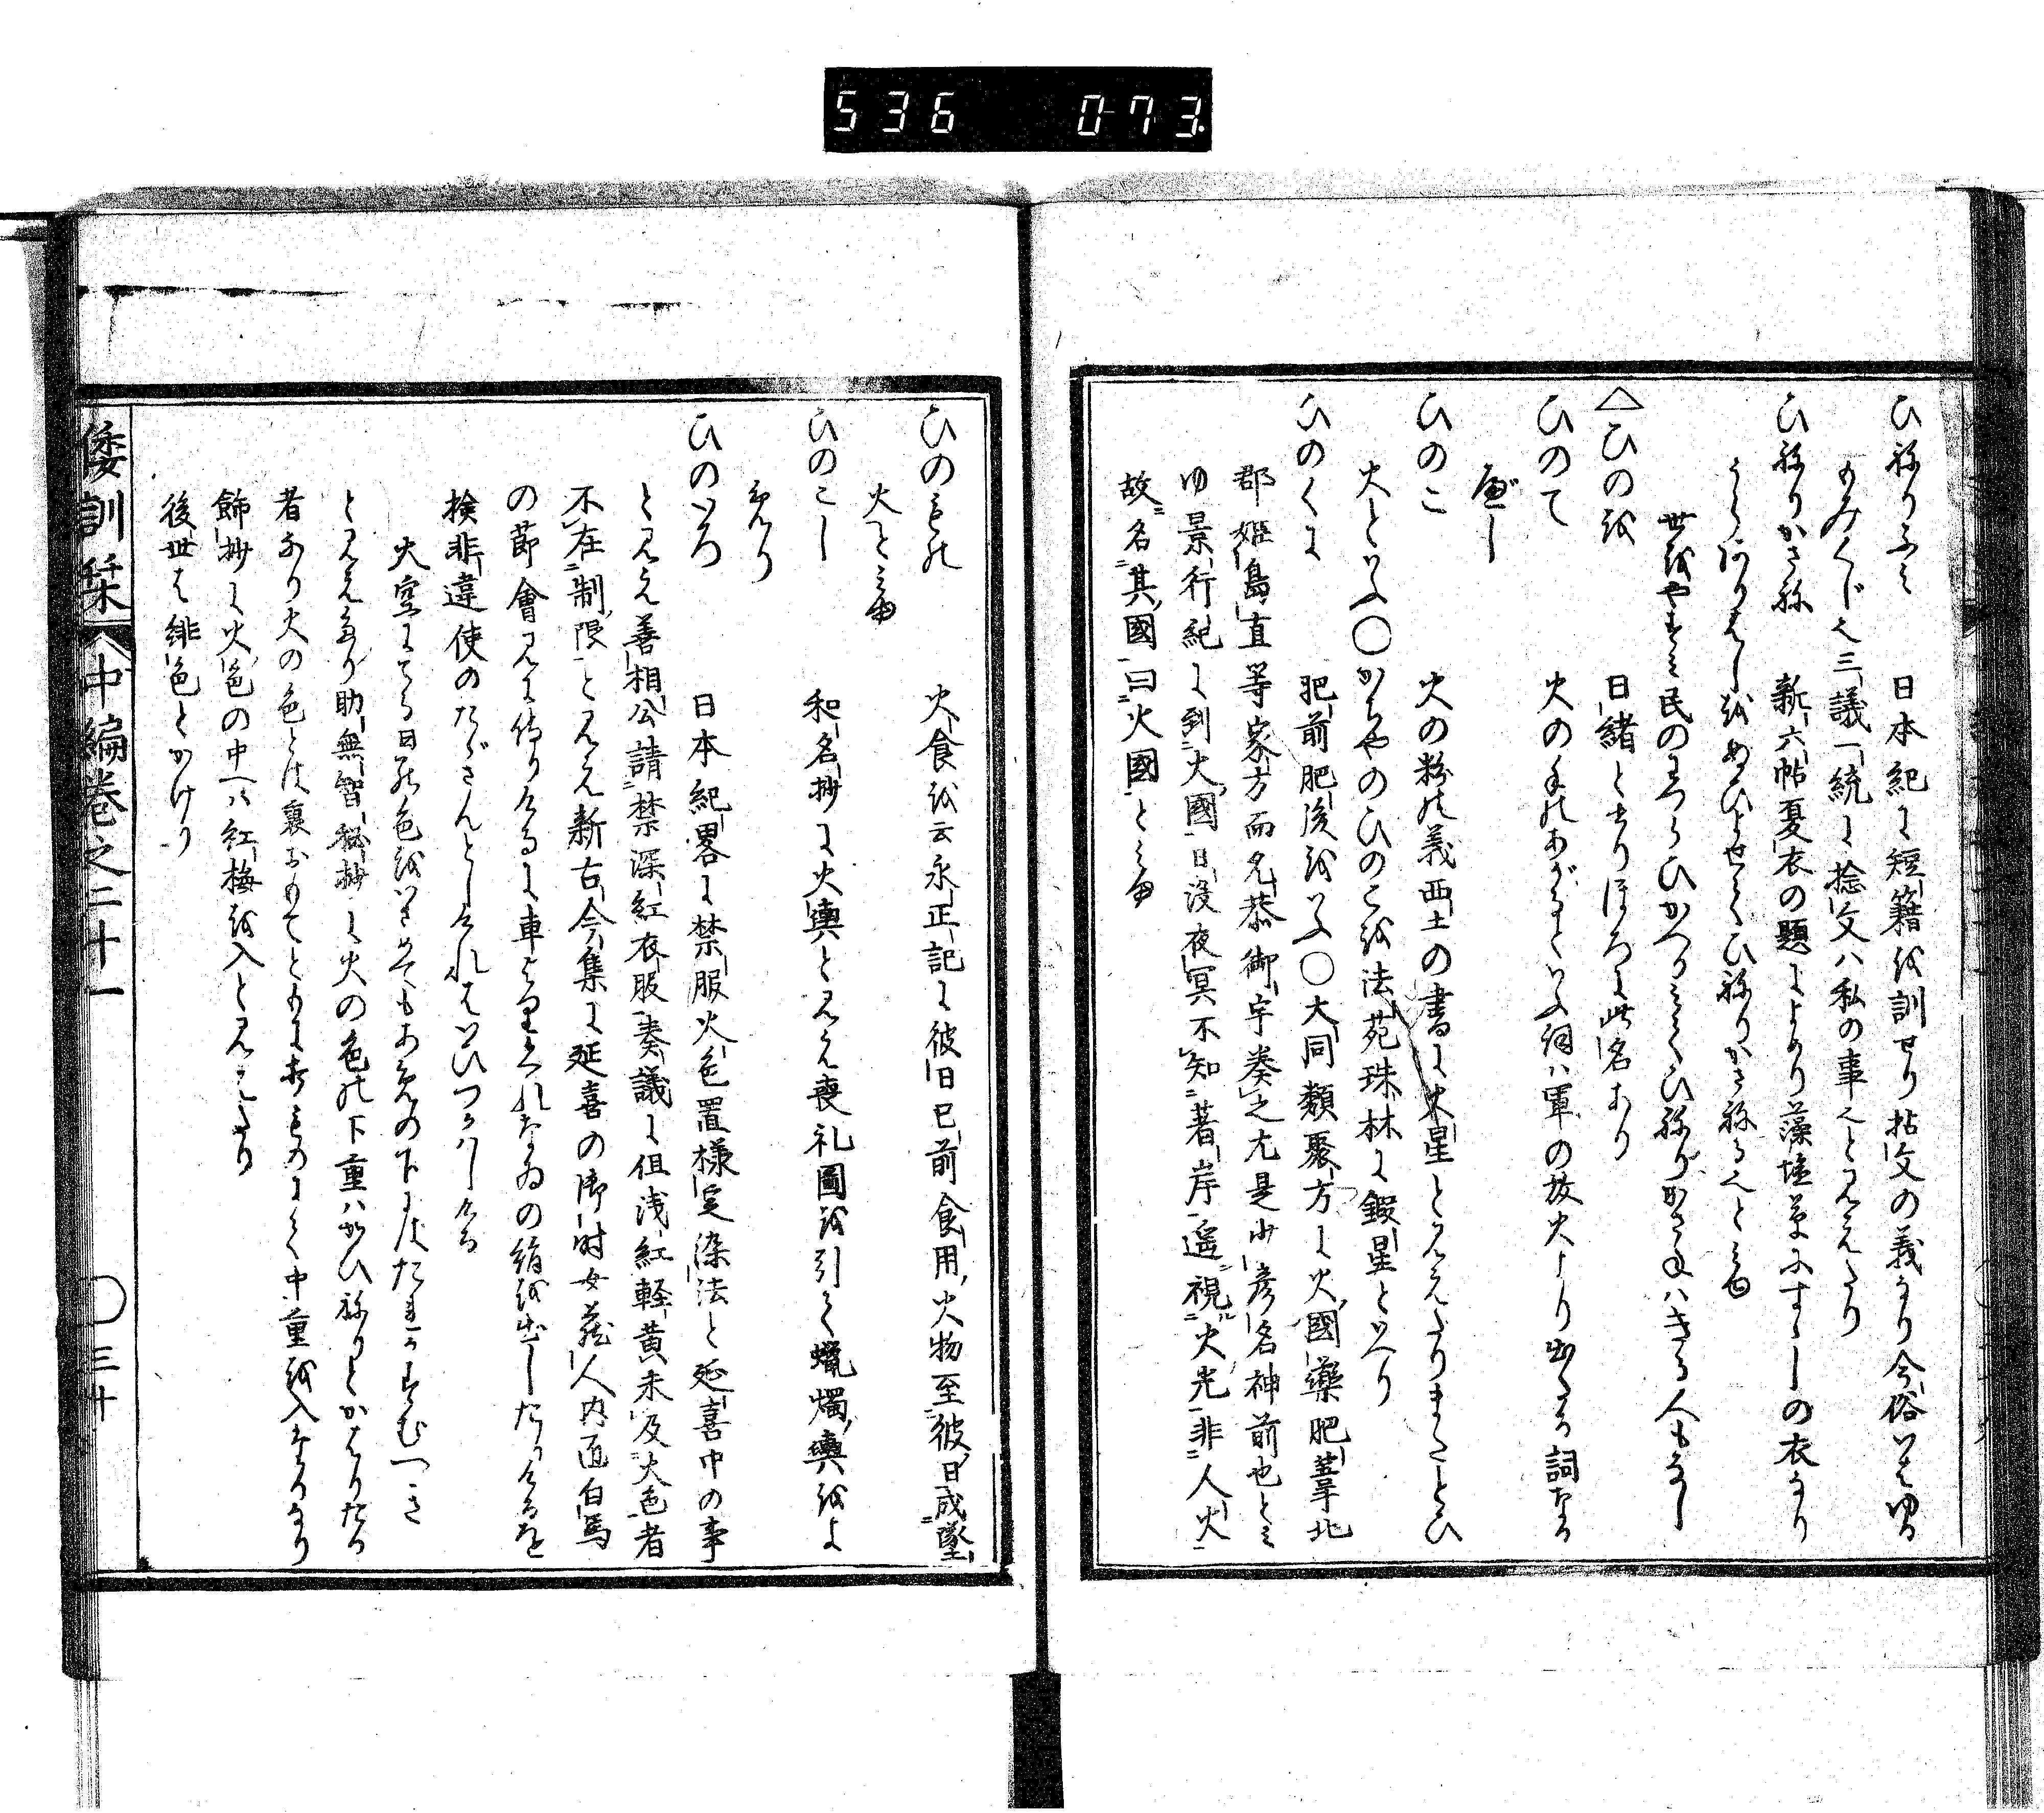 536 073
ひねりふミ 日本紀に短籍を訓せり拈文の義なり今俗いはゆる
のみくじ也三議一統に捻文ハ私の事也とみえたり
ひねりかさね 新六帖夏衣の題によめり藻塩草にすゝしの衣なり
世をやすミ民のわつらひかへりミてひねりがさねハきる人もなし
△ひのを 日緒と書りほろに此名あり
ひのて 火の手のあがるといふ詞ハ軍の放火より出たる詞なる
べし
ひのこ 火の粉の義西土の書に火星とみえたりまたとひ
火といふ〇かぢやのひのこを法苑珠林に鍛星といへり
ひのくに 肥前肥後をいふ〇大同類聚方に火國藥肥前北
郡姫島直等家方而兄恭御宇奏之尤是少彦名神前也とミ
ゆ景行紀に到火國日没夜冥不知著岸遥視火光非人火
故名其國曰火國とミゆ
ひのもの 火食を云永正記に彼日已前食用火物至彼日成墜
火とミゆ
ひのこし 和名抄に火輿とみえ喪礼圖を引て蠟燭輿をよ
めり
ひのいろ 日本紀畧に禁服火色置様定染法と延喜中の事
とみえ善相公請禁深紅衣服奏議に但浅紅軽黄未及火色者
不在制限とみえ新古今集に延喜の御時女蔵人内匠白馬
の節會見に侍りけるに車よりくれなゐの絹を出したりけるを
検非違使のたゞさんとしけれはいひつかハしける
大空にてる日の色をいさめてもあめの下にはたれかすむへき
とみえたり助無智秘抄に火の色の下重ハかいひねりとかはりたる
者なり火の色とは裏おもてともに打ものにて中重を入たるなり
飾抄に火色の中へハ紅梅を入とみえたり
後世は緋色とかけり
倭訓栞 中編巻之二十一 〇三十